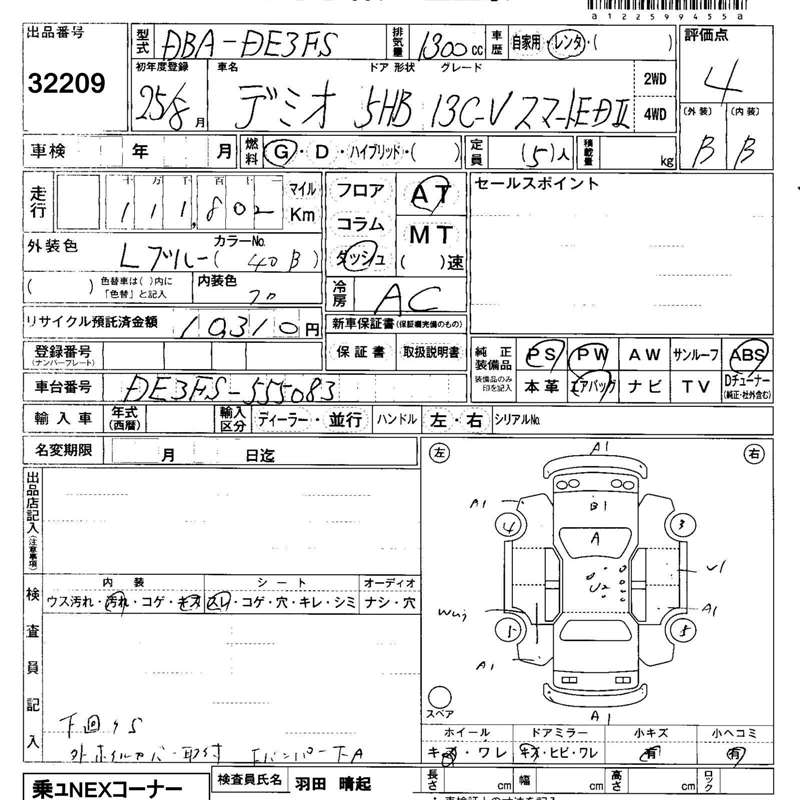 a12259945 5a
出品番号 32209
型式 DBA-DE3FS 排気量 1300cc 車歴 自家用・レンタ・( )
評価点 4
初年度登録 25/8月 車名 デミオ ドア 形状 5HB グレード 13C-V スマートEDⅡ 2WD 4WD
(外装) B (内装) B
車検 年 月 燃料 G・D・ハイブリッド・( ) 定員 (5)人 積載量 kg
走行 十万千百十一 111,802 マイル Km
フロア コラム ダッシュ
AT MT ( )速
セールスポイント
外装色 Lブルー カラーNo. (40B)
( ) 色替車は( )内に「色替」と記入 内装色
冷房 AC
リサイクル預託済金額 10310円
新車保証書(保証欄完備のもの)
登録番号(ナンバープレート)
保証書 取扱説明書
純正装備品 PS PW AW サンルーフ ABS
装備品のみ印を記入 本革 エアバッグ ナビ TV Dチューナー(純正・社外含む)
車台番号 DE3FS-555083
輸入車 年式(西暦) 輸入区分 ディーラー・並行 ハンドル 左・右 シリアルNo.
名変期限 月 日迄
出品店記入(注意事項)
左 右
A1
A1 B1
4 3
A
U2
U1
A1
5 5
A1
A1
スペア
検査員記入
内装 シート オーディオ
ウス汚れ・汚れ・コゲ・キズ スレ・コゲ・穴・キレ・シミ ナシ・穴
下回りS
外ホイルカバー取付 Fバンパー下A
ホイール ドアミラー 小キズ 小ヘコミ
キズ・ワレ キズ・ヒビ・ワレ 有 有
乗ユNEXコーナー
検査員氏名 羽田 晴起
長さ cm 幅 cm 高さ cm ロック